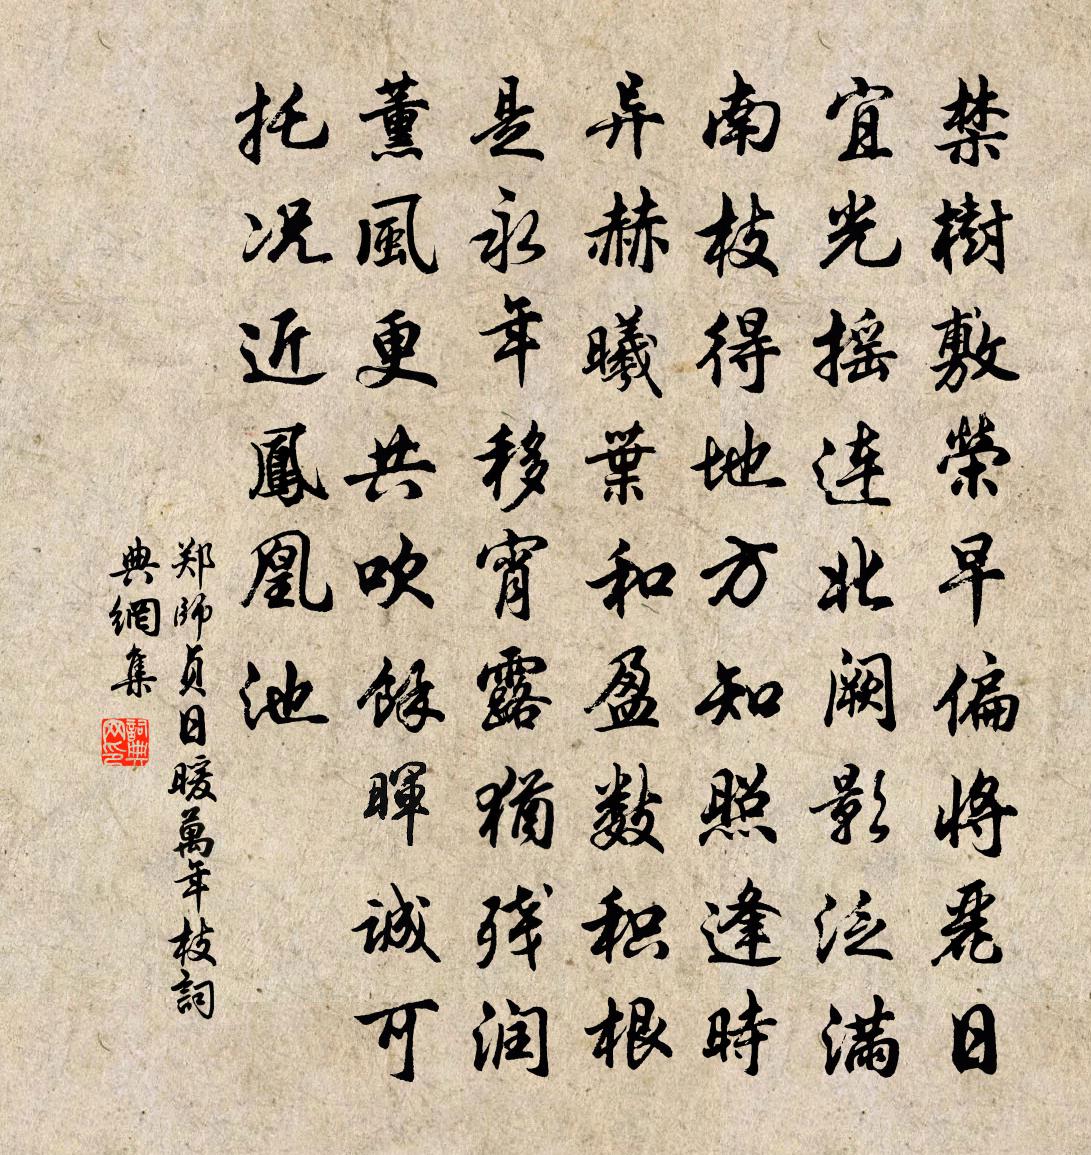 禁樹敷榮早偏將麗日
宜光摇连北阙影泛滿
南枝得地方知照逢時
异赫曦葉和盈数积根
是永年移宵露猶残润
薰風更共吹餘暉诚可
托况近鳳凰池
郑師贞日暖萬年枝詞
典網集
詞典网印